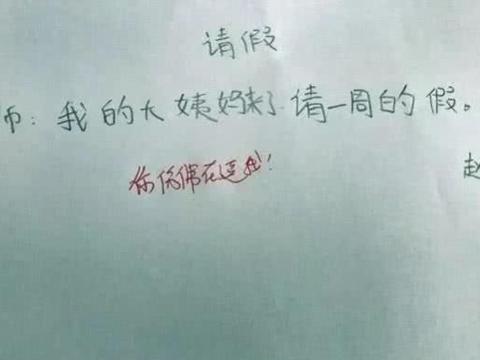 请假
师：我的大姨妈来了请一周的假。
你仿佛在逗我！
赵